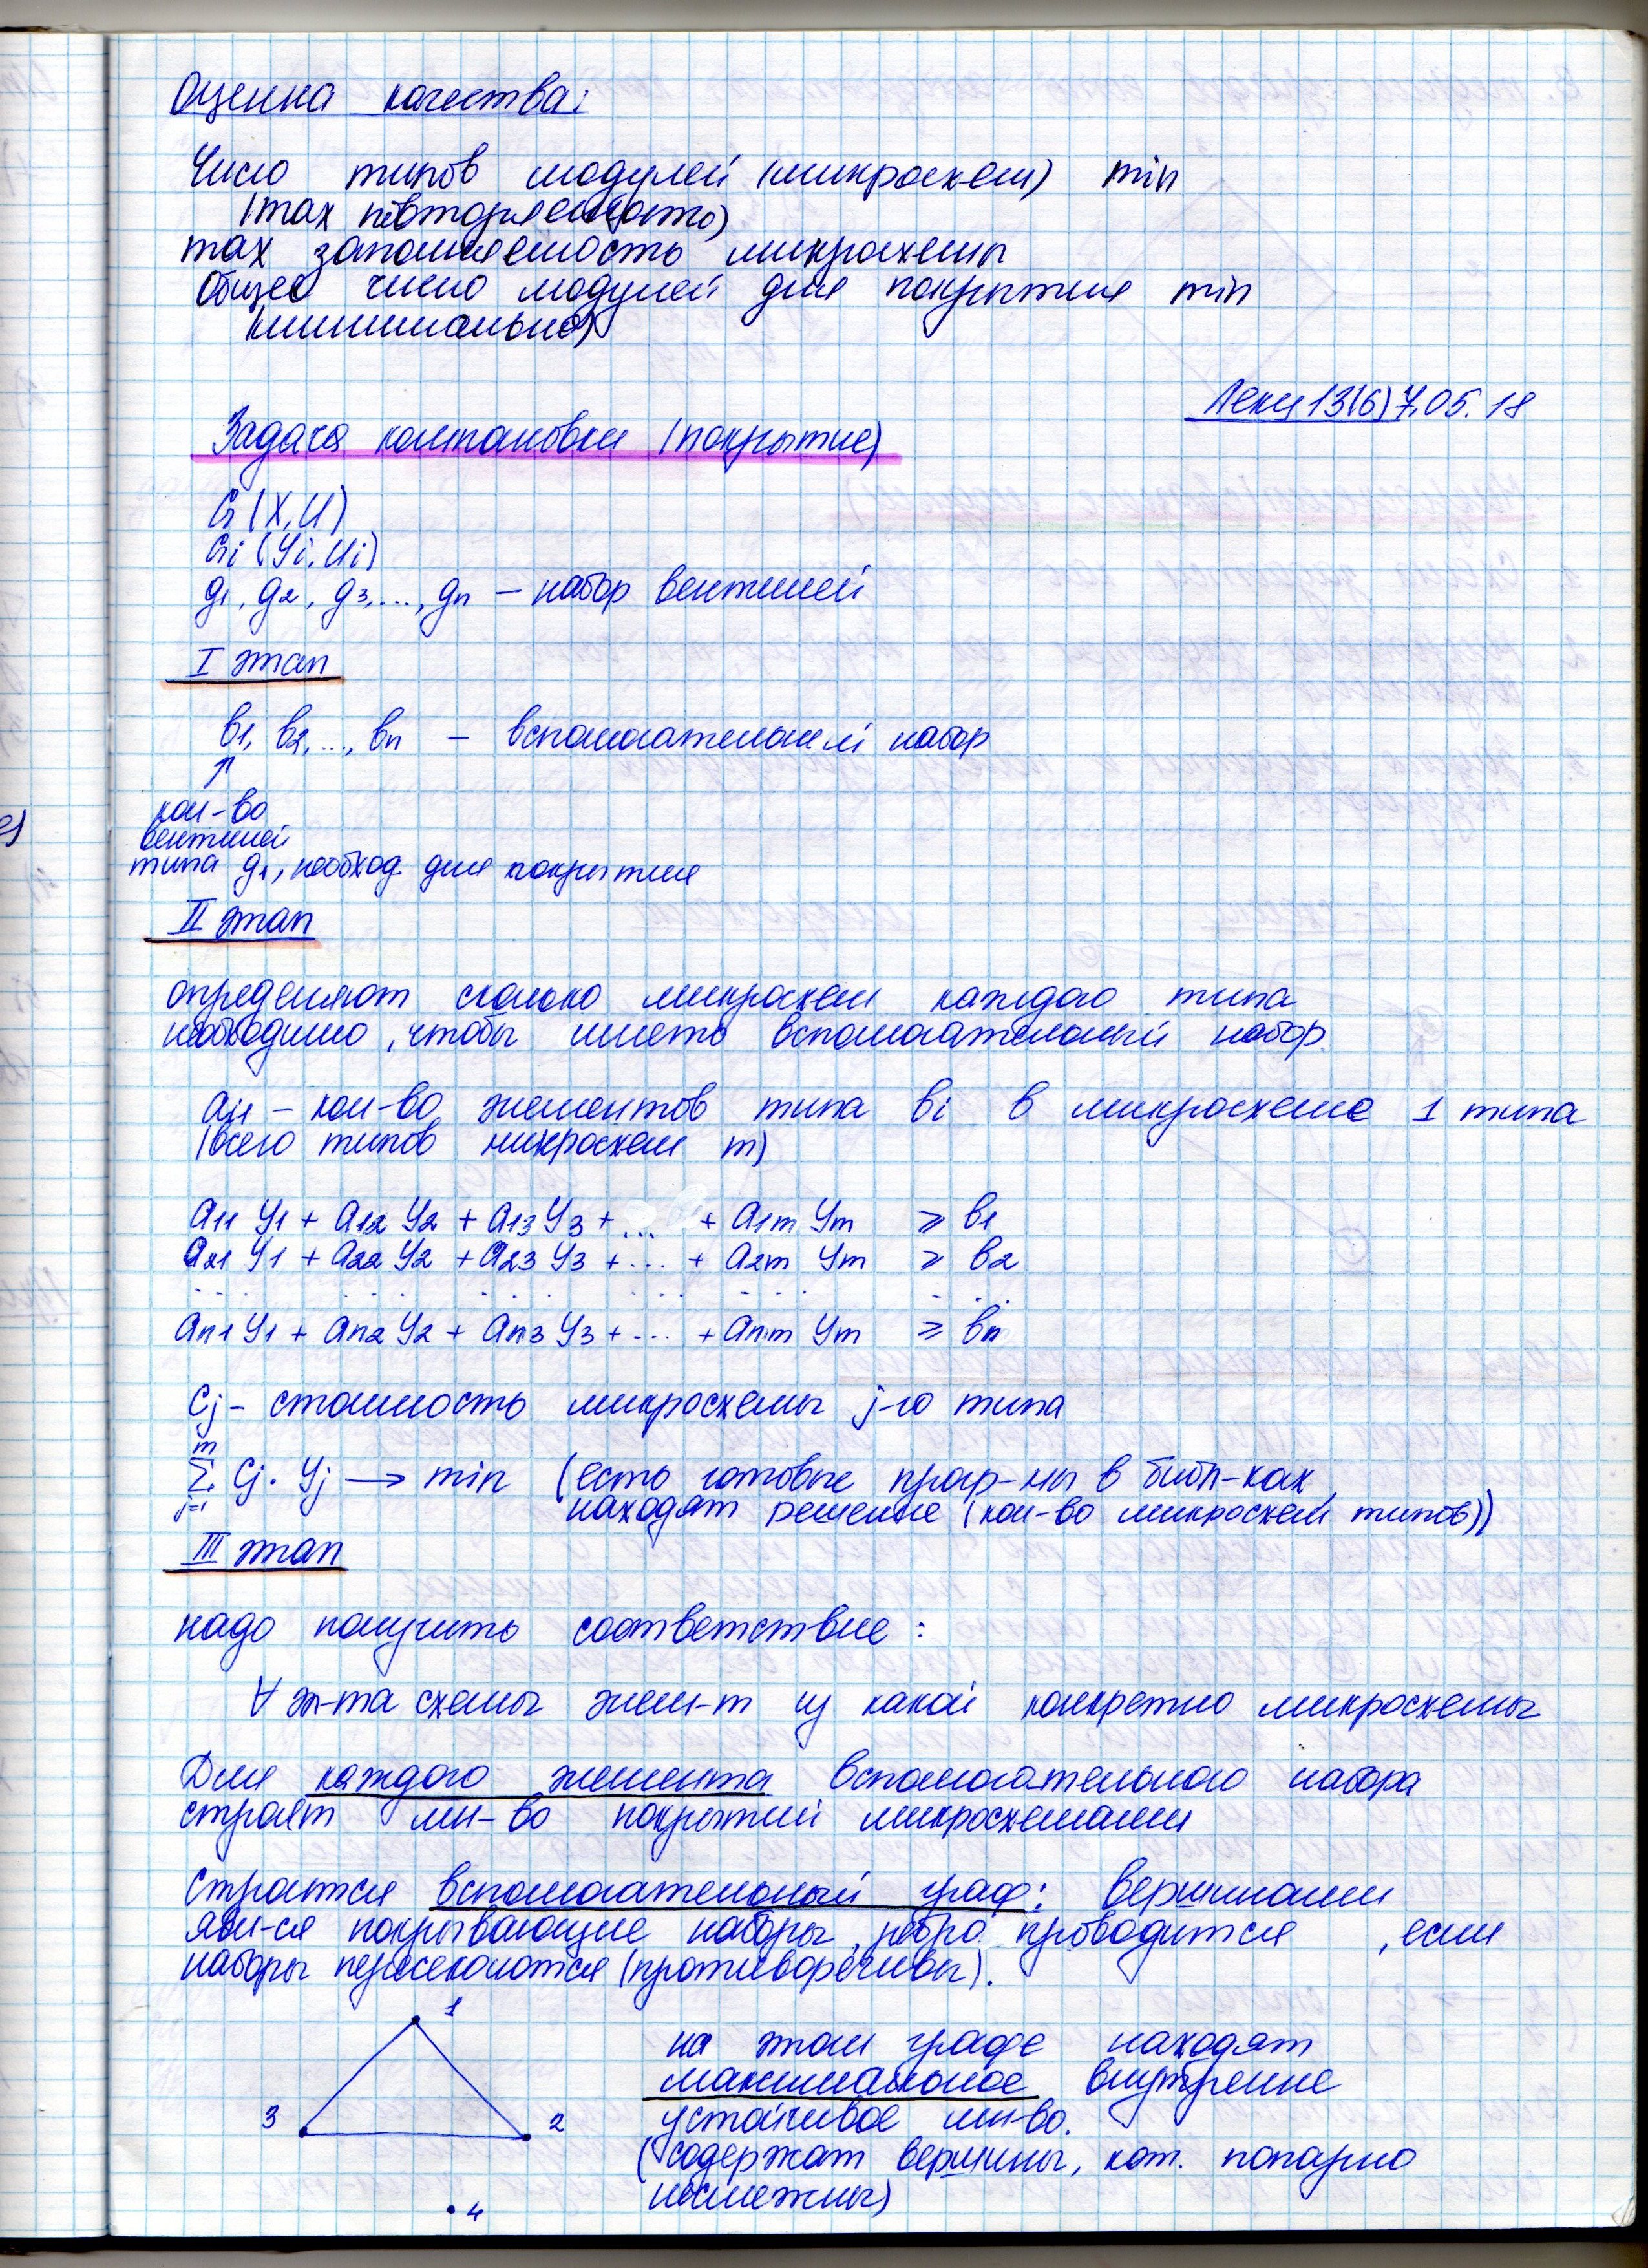 Оценка качества:
Число типов модулей (микросхем) min
(max повторяемость)
max заполняемость микросхемы
Общее число модулей для покрытия min
(минимально)
Лекц 13(6) 7.05.18
Задача компоновки (покрытие)
G(X,U)
Gi(Yi,Ui)
g1, g2, g3,..., gn – набор вентилей
I этап
b1, b2,..., bn – вспомогательный набор
↑
кол-во
вентилей
типа g1, необход. для покрытия
II этап
определяют сколько микросхем каждого типа
необходимо, чтобы иметь вспомогательный набор.
ai1 – кол-во элементов типа bi в микросхеме 1 типа
(всего типов микросхем m)
a11 y1 + a12 y2 + a13 y3 + ... + a1m ym ≥ b1
a21 y1 + a22 y2 + a23 y3 + ... + a2m ym ≥ b2
. . . . . . . . . . . . . . . . . .
an1 y1 + an2 y2 + an3 y3 + ... + anm ym ≥ bn
Cj – стоимость микросхемы j-го типа
m
∑ Cj · yj → min (есть готовые прогр-мы в библ-ках,
j=1 находят решение (кол-во микросхем типов))
III этап
надо получить соответствие:
∀ эл-та схемы элем-т из какой конкретно микросхемы
Для каждого элемента вспомогательного набора
строят мн-во покрытий микросхемами
Строится вспомогательный граф: вершинами
явл-ся покрывающие наборы, ребро проводится, если
наборы пересекаются (противоречивы).
1
3
2
4
на этом графе находят
максимальное внутренне
устойчивое мн-во.
(содержат вершины, кот. попарно
несмежны)